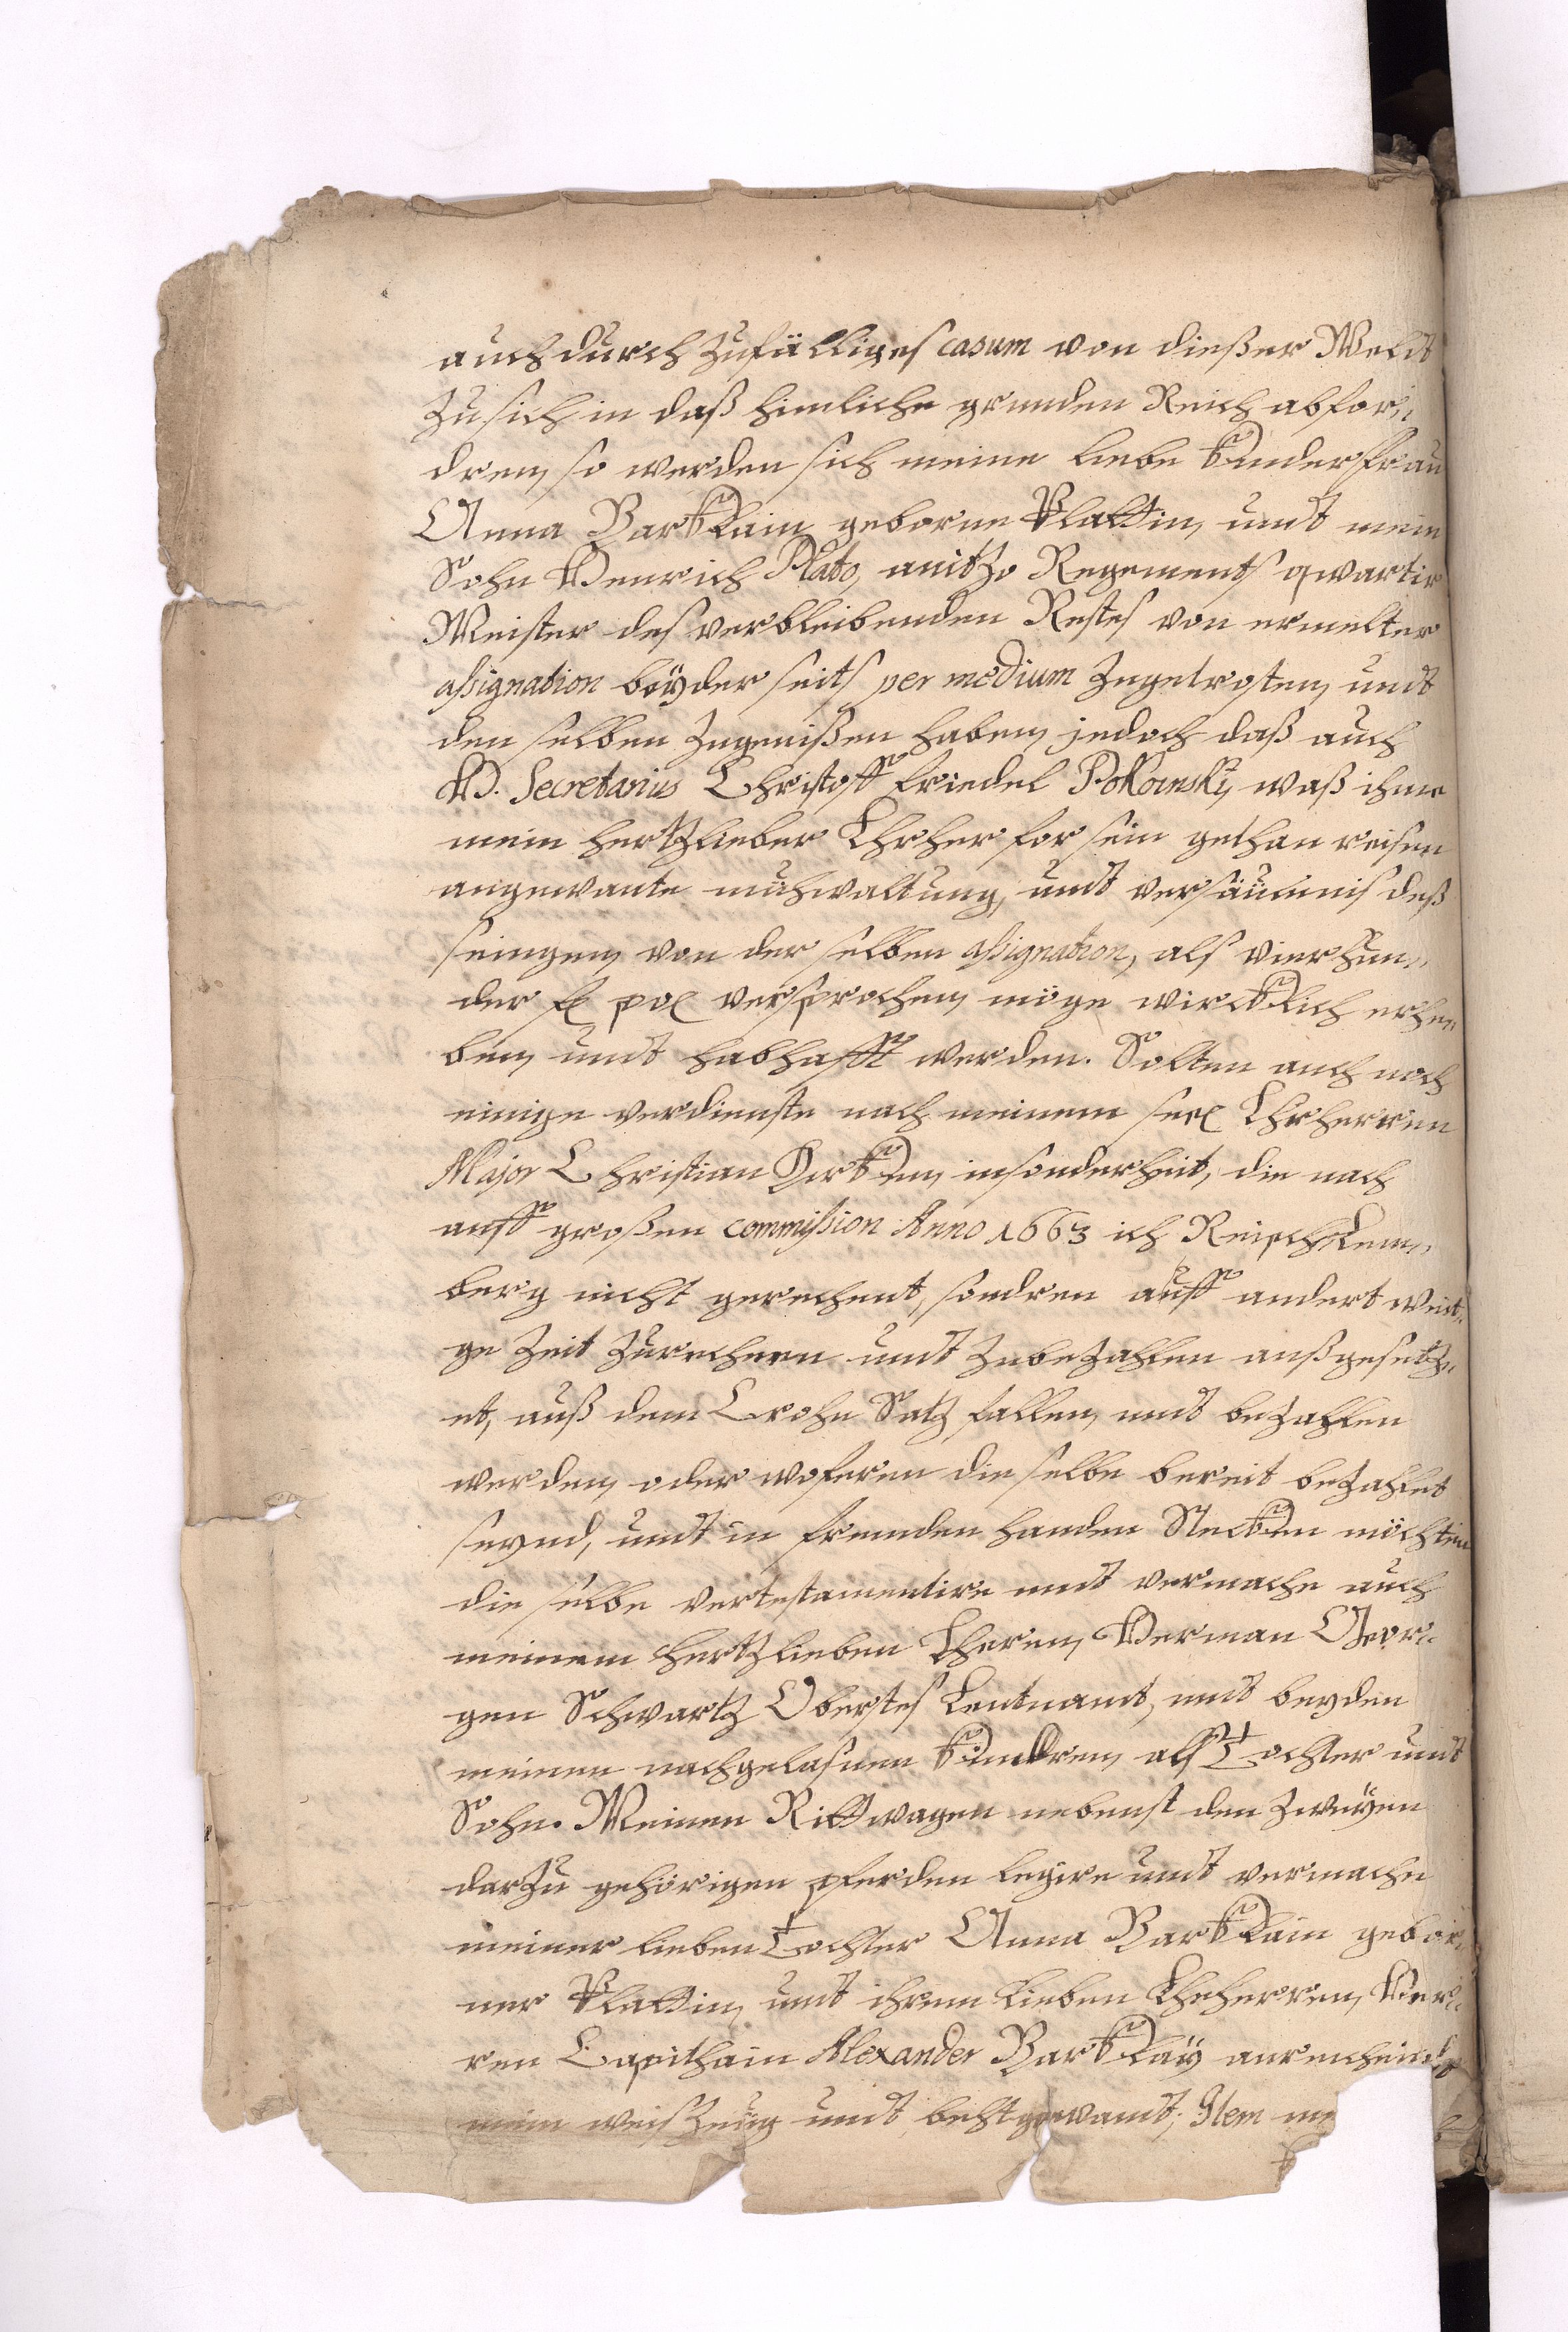 auch durch Zufälliges casum von dießer Weldt
Zu sich in daß himliche grnnden Reich abfor¬
dren, so werden sich meine liebe Kinder frau
Anna Barcklain geborne Plattin, undt mein
Sohn Henrich Plato, anitzo Regements qwartir
Meister des verbleibenden Restes von ermelter
assignation beÿder seits per medium Zugetrosten, undt
den selben Zugenißen haben, jedoch daß auch
H. Secretarius Christoff Friedel Pokoinski, waß ihme
mein hertzlieber Ehherr for sein gethan reisen
angewante mühwaltung, undt versäumnis deß
seingen, von der selben assignation, als vierhun¬
der fl pol versprochen, möge wircklich erhe¬
ben, undt habhafft werden. Solten auch noch
einige verdienste nach meinem seel Ehherren
Major Christian Gercken, insonderheit, die nach
auff großen commission Anno 1663 ich Reisch Lem¬
berg nicht gerechent, sondren auff andert weit¬
ge Zeit Zurechnen undt Zubezahlen außgesetz¬
et, auß dem Crohn Satz fallen, undt bezahlen
werden, oder woferen die selbe bereit bezahlet
seynd, undt in fremden handen Stecken möchten
die selbe vertestamentire undt vermache auch
meinem hertzlieben Eheren, Herman Geor¬
gen Schwartz Oberstes Leutnamt, undt beyden
meinen nachgelasnen Kindren, als Tochter undt
Sohn. Meinen Rittwagen nebenst den Zweÿen
darzu gehörigen pferden legire undt vermache
meiner lieben Tochter Anna Barcklain gebor¬
ner Plattin, undt ihrem lieben Eheherren, Her¬
ren Capithain Alexander Barcklaÿ
mein weiß Zeug undt bettgewandt; Item